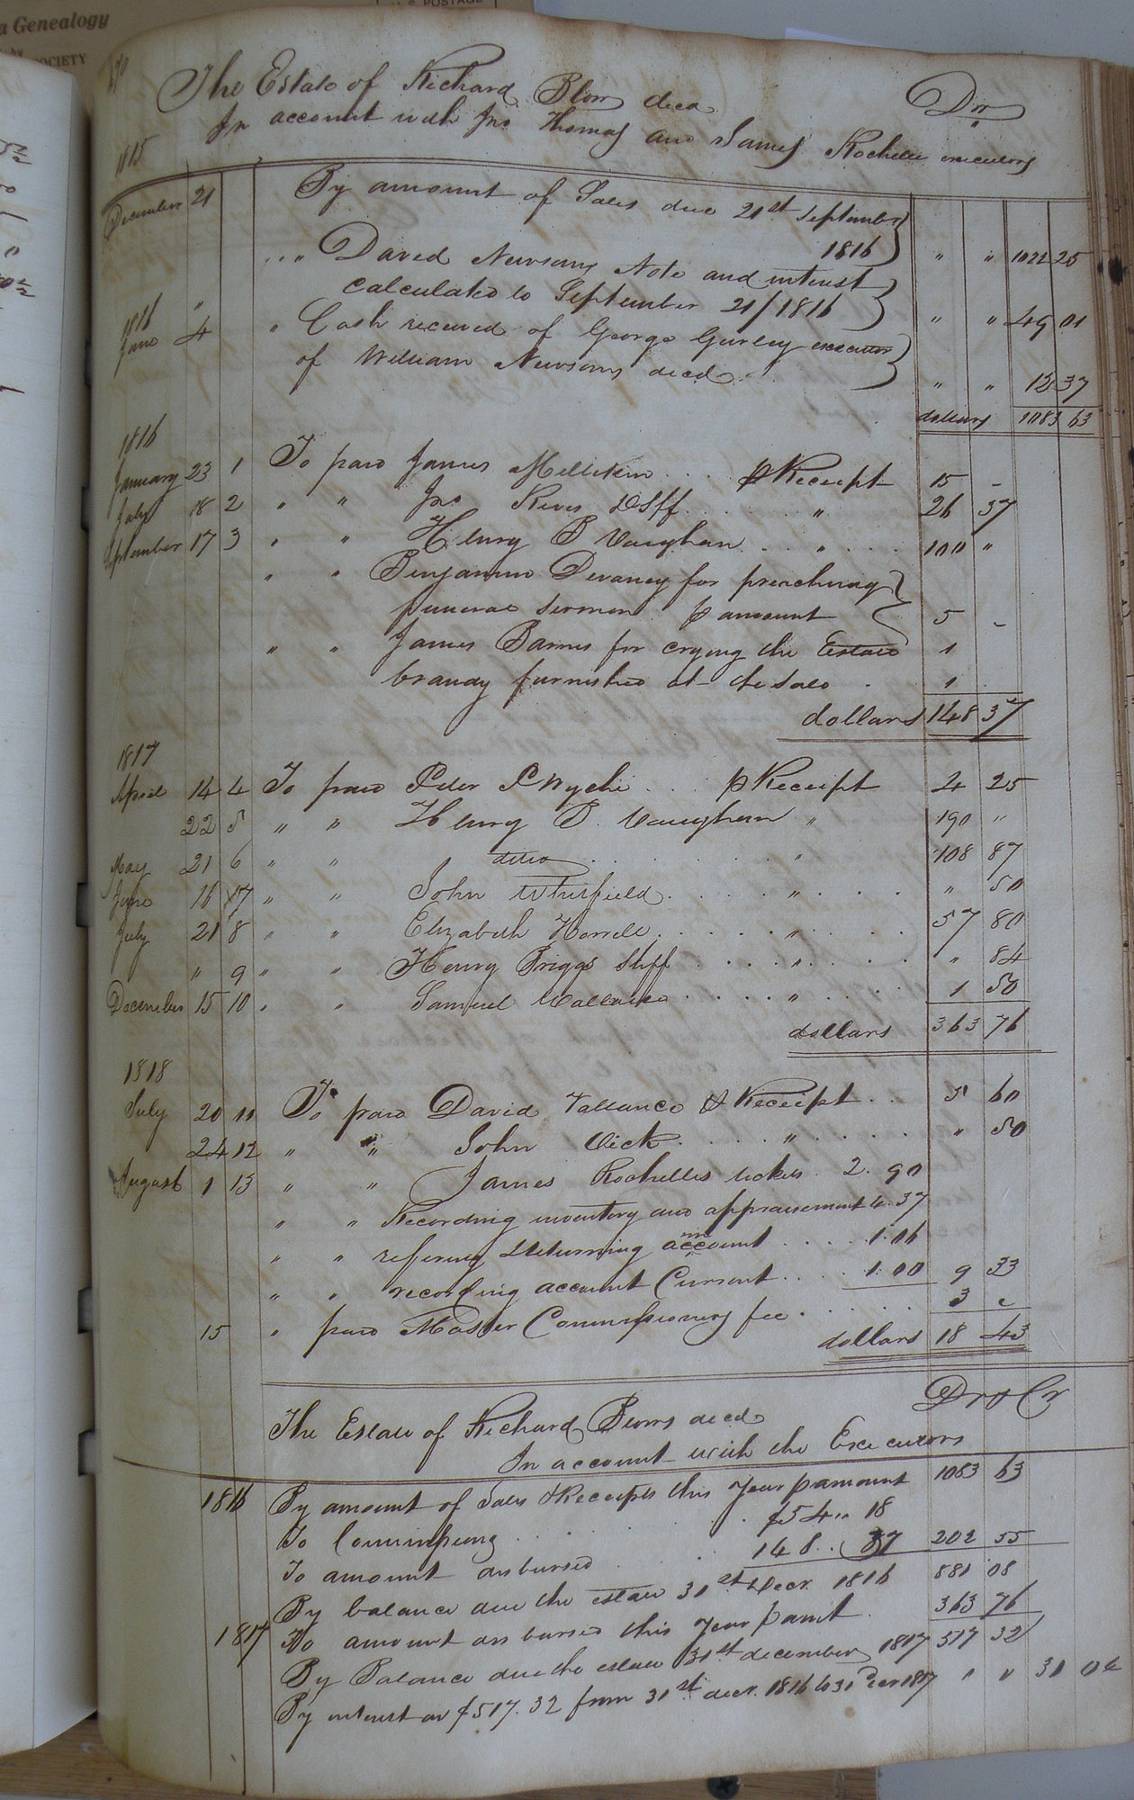 a Genealogy
SOCIETY
POSTAGE
The Estate of Richard Blow decd Dr
In account with Jno Thomas and James Rochelle executors
1815
December 21 By amount of Sales due 21st September 1816 " " 1022 25
" David Newsoms Note and interest
calculated to September 21/1816 " " 49 01
1816
June 4 " Cash received of George Gurley executor
of William Newsoms decd " " 12 37
dollars 1083 63
1816
January 23 1 To paid James Millikin . . . p Receipt 15 -
July 18 2 " " Jno Rives DSff . . . " 26 37
September 17 3 " " Henry B Vaughan . . " . . . 100 "
" " Benjamin Devaney for preaching
funeral Sermon p amount 5 -
" " James Barnes for crying the Estate 1
brandy furnished at the Sale . 1
dollars 148 37
1817
April 14 4 To paid Peter P Wyche . . . p Receipt 4 25
22 5 " " Henry B. Vaughan " 190 "
May 21 6 " " ditto . . . " 108 87
June 16 7 " " John Whitfield . . . " . . . " 50
July 21 8 " " Elizabeth Harrell . . . " . . . 57 80
" 9 " " Henry Briggs Shff . . . " . . . " 84
December 15 10 " " Samuel . . . " . . . 1 50
dollars 363 76
1818
July 20 11 To paid David Vallance p Receipt . . 5 60
24 12 " " John Vick . . . " . . . " 50
August 1 13 " " James Rochelles tickets 2. 90
" " Recording inventory and appraisement 4. 37
" " refering & returning account . . . 1. 06
" " recording account Current . . . 1. 00 9 33
15 " paid Master Commissioners fee . . . 3 "
dollars 18 43
The Estate of Richard Blows decd Dr & Cr
In account with the Executors
1816 By amount of Sales & Receipts this Year p amount 1083 63
To Commissions . . . $54 " 18
To amount disbursed . . . 148 . . 37 202 55
By balance due the estate 31st Decr. 1816 881 08
1817 To amount disbursed this Year p amt . 363 76
By Balance due the estate 31st december 1817 517 32
By interest on $517. 32 from 31st decr. 1816 to 31 Decr 1817 " " 31 04